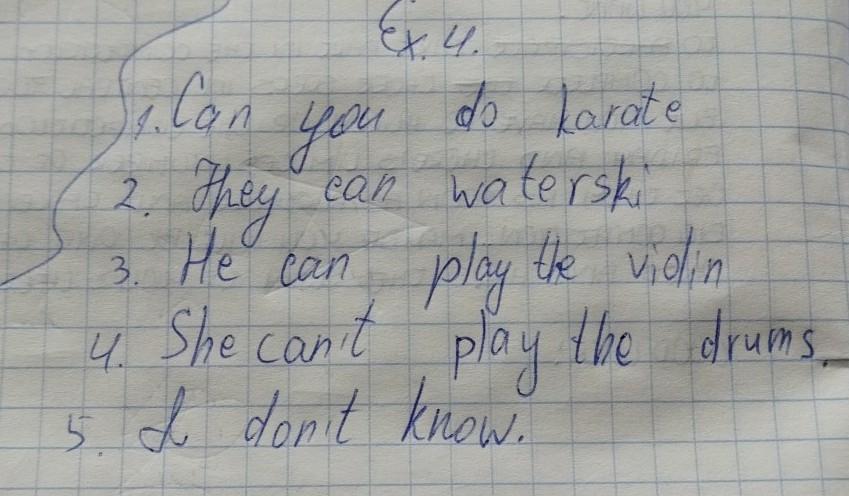 Ex. 4.
1. Can you do karate
2. They can waterski
3. He can play the violin
4. She can't play the drums.
5. I don't know.